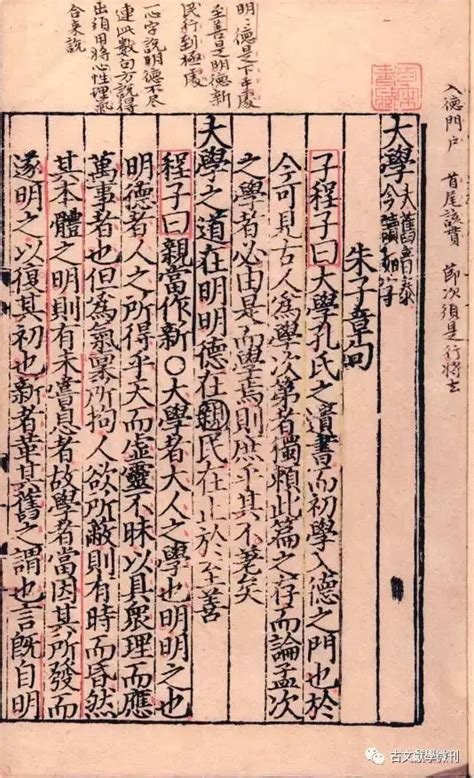 入德門户 首尾該貫 節次須是行將去
大學 大舊音泰
今讀如字
朱子章句
子程子曰大學孔氏之遺書而初學入德之門也於
今可見古人為學次第者獨賴此篇之存而論孟次
之學者必由是而學焉則庶乎其不差矣
大學之道在明明德在親民在止於至善
程子曰親當作新○大學者大人之學也明明之也
明德者人之所得乎天而虛靈不昧以具衆理而應
萬事者也但為氣稟所拘人欲所蔽則有時而昏然
其本體之明則有未嘗息者故學者當因其所發而
遂明之以復其初也新者革其舊之謂也言既自明
明〻德是下手處
至善是明德新
民行到極處
一心字說明德不尽
連此數句方說得
出須用將心性理氣
合來說
古文獻學微刊